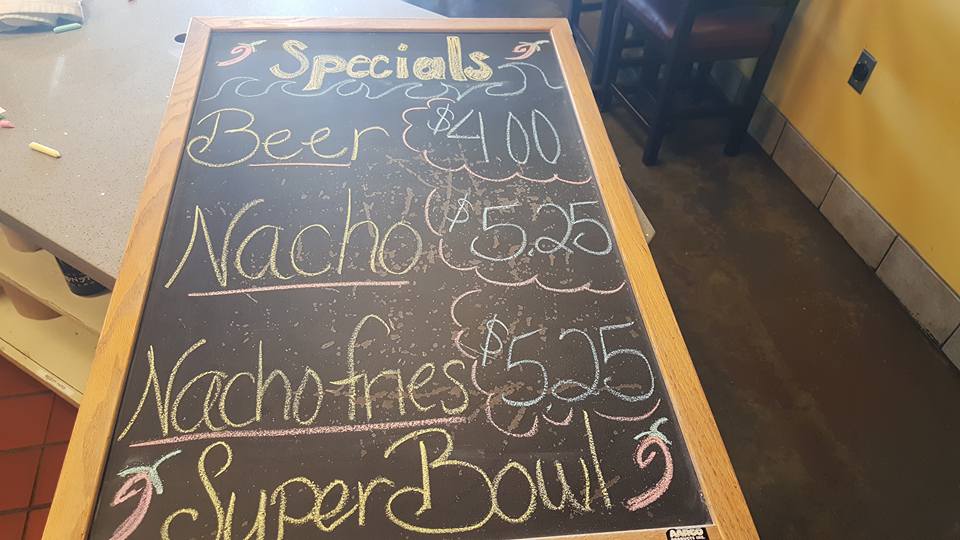 Specials
Beer $4.00
Nacho $5.25
Nacho fries $5.25
Super Bowl
AARCO